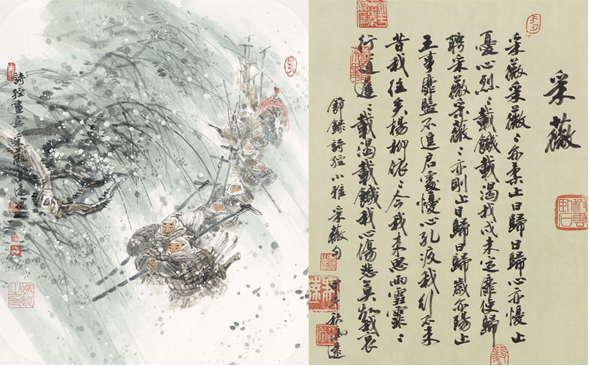 采薇
采薇采薇〻亦柔止曰歸曰歸心亦憂止
憂心烈〻載飢載渴我戍未定靡使歸
聘采薇采薇〻亦剛止曰歸曰歸歲亦陽止
王事靡盬不遑啟處憂心孔疚我行不來
昔我往矣楊柳依〻今我來思雨雪霏〻
行道遲〻載渴載飢我心傷悲莫知我哀
節錄詩經小雅采薇句
詩經畫意采薇